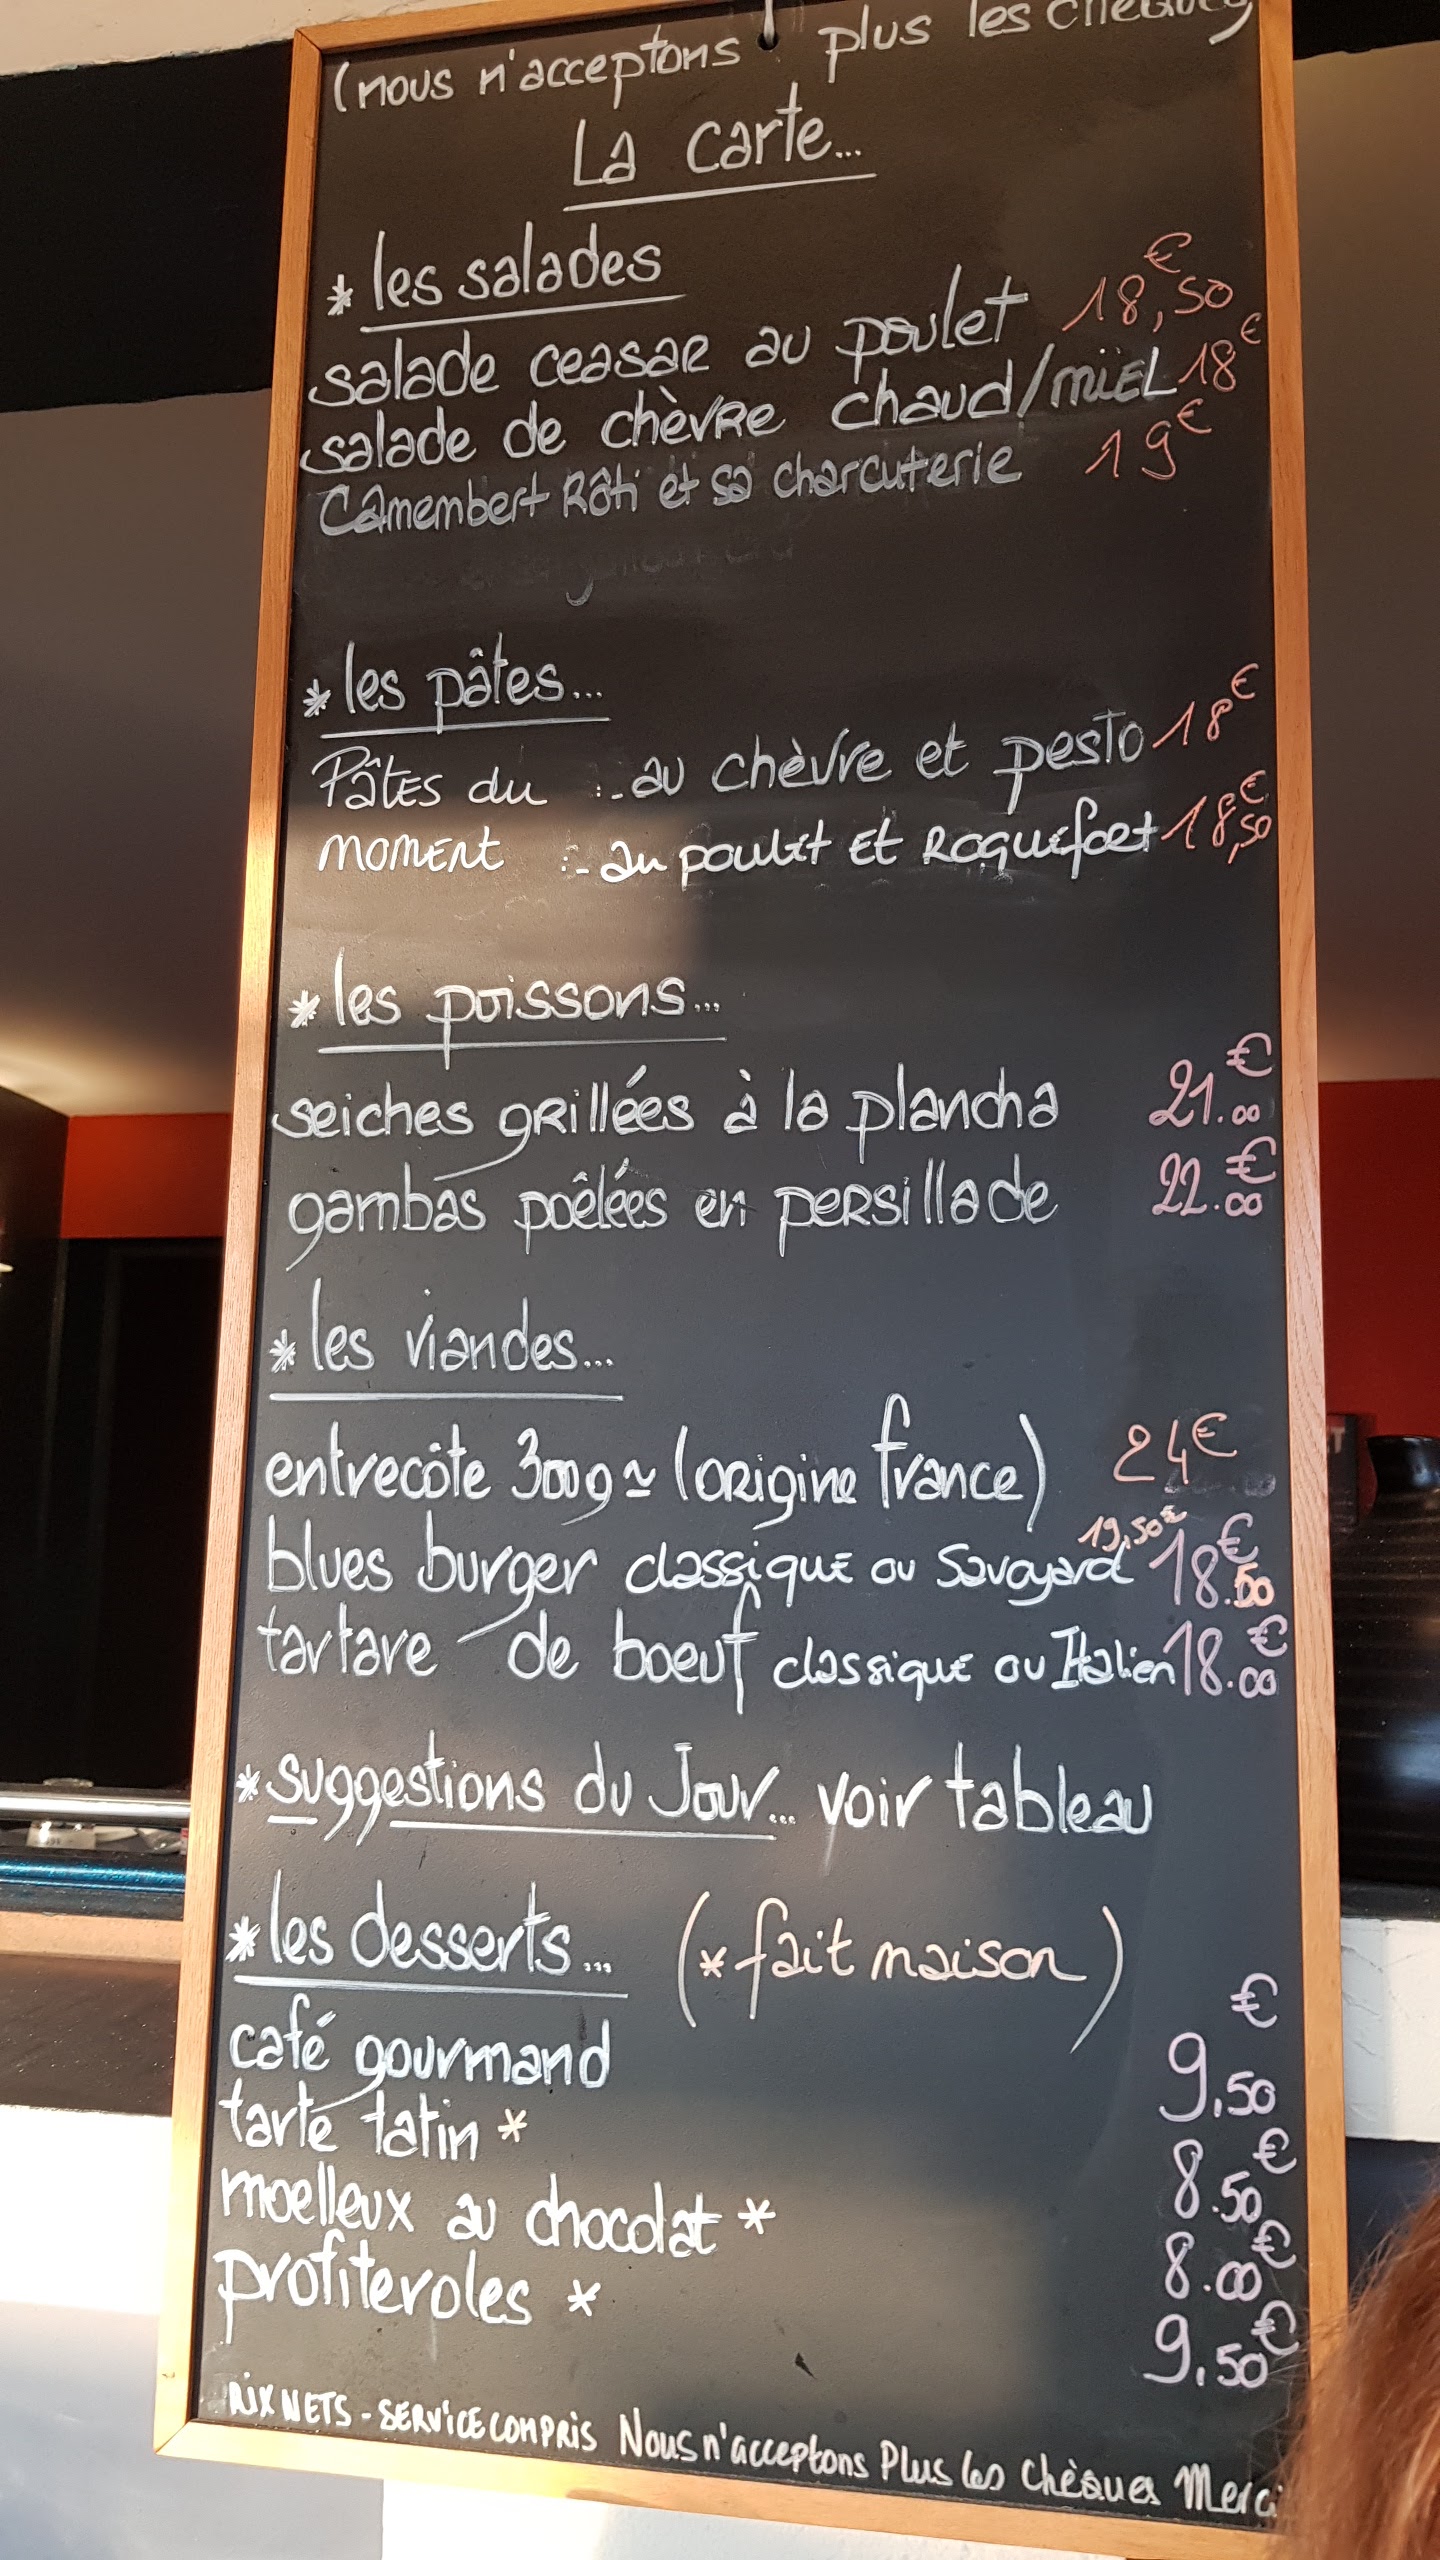 (nous n'acceptons plus les chèques
La carte...
* les salades
salade ceasar au poulet 18,50€
salade de chèvre chaud/miel 18€
Camembert Rôti et sa charcuterie 19€
* les pâtes...
Pâtes du :- au chèvre et pesto 18€
moment :- au poulet et Roquefort 18,50€
* les poissons...
seiches grillées à la plancha 21.00€
gambas poêlées en persillade 22.00€
* les viandes...
entrecôte 300g ~ (origine france) 24€
19,50€
blues burger classique ou Savoyard 18.50€
tartare de boeuf classique ou Italien 18.00€
* suggestions du Jour... voir tableau
* les desserts... (* fait maison)
café gourmand 9,50€
tarte tatin * 8.50€
moelleux au chocolat * 8.00€
profiteroles * 9,50€
RIX NETS - SERVICE COMPRIS Nous n'acceptons Plus les Chèques Merci